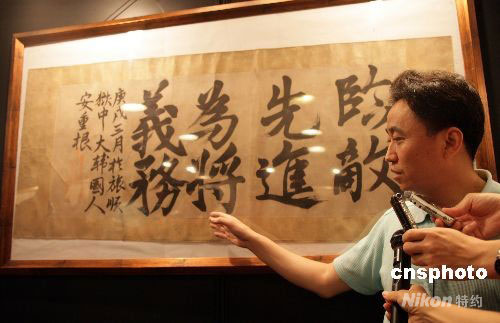 臨敵
先進
為將
義務
庚戌三月於旅順
獄中 大韓國人
安重根
cnsphoto
Nikon 特约